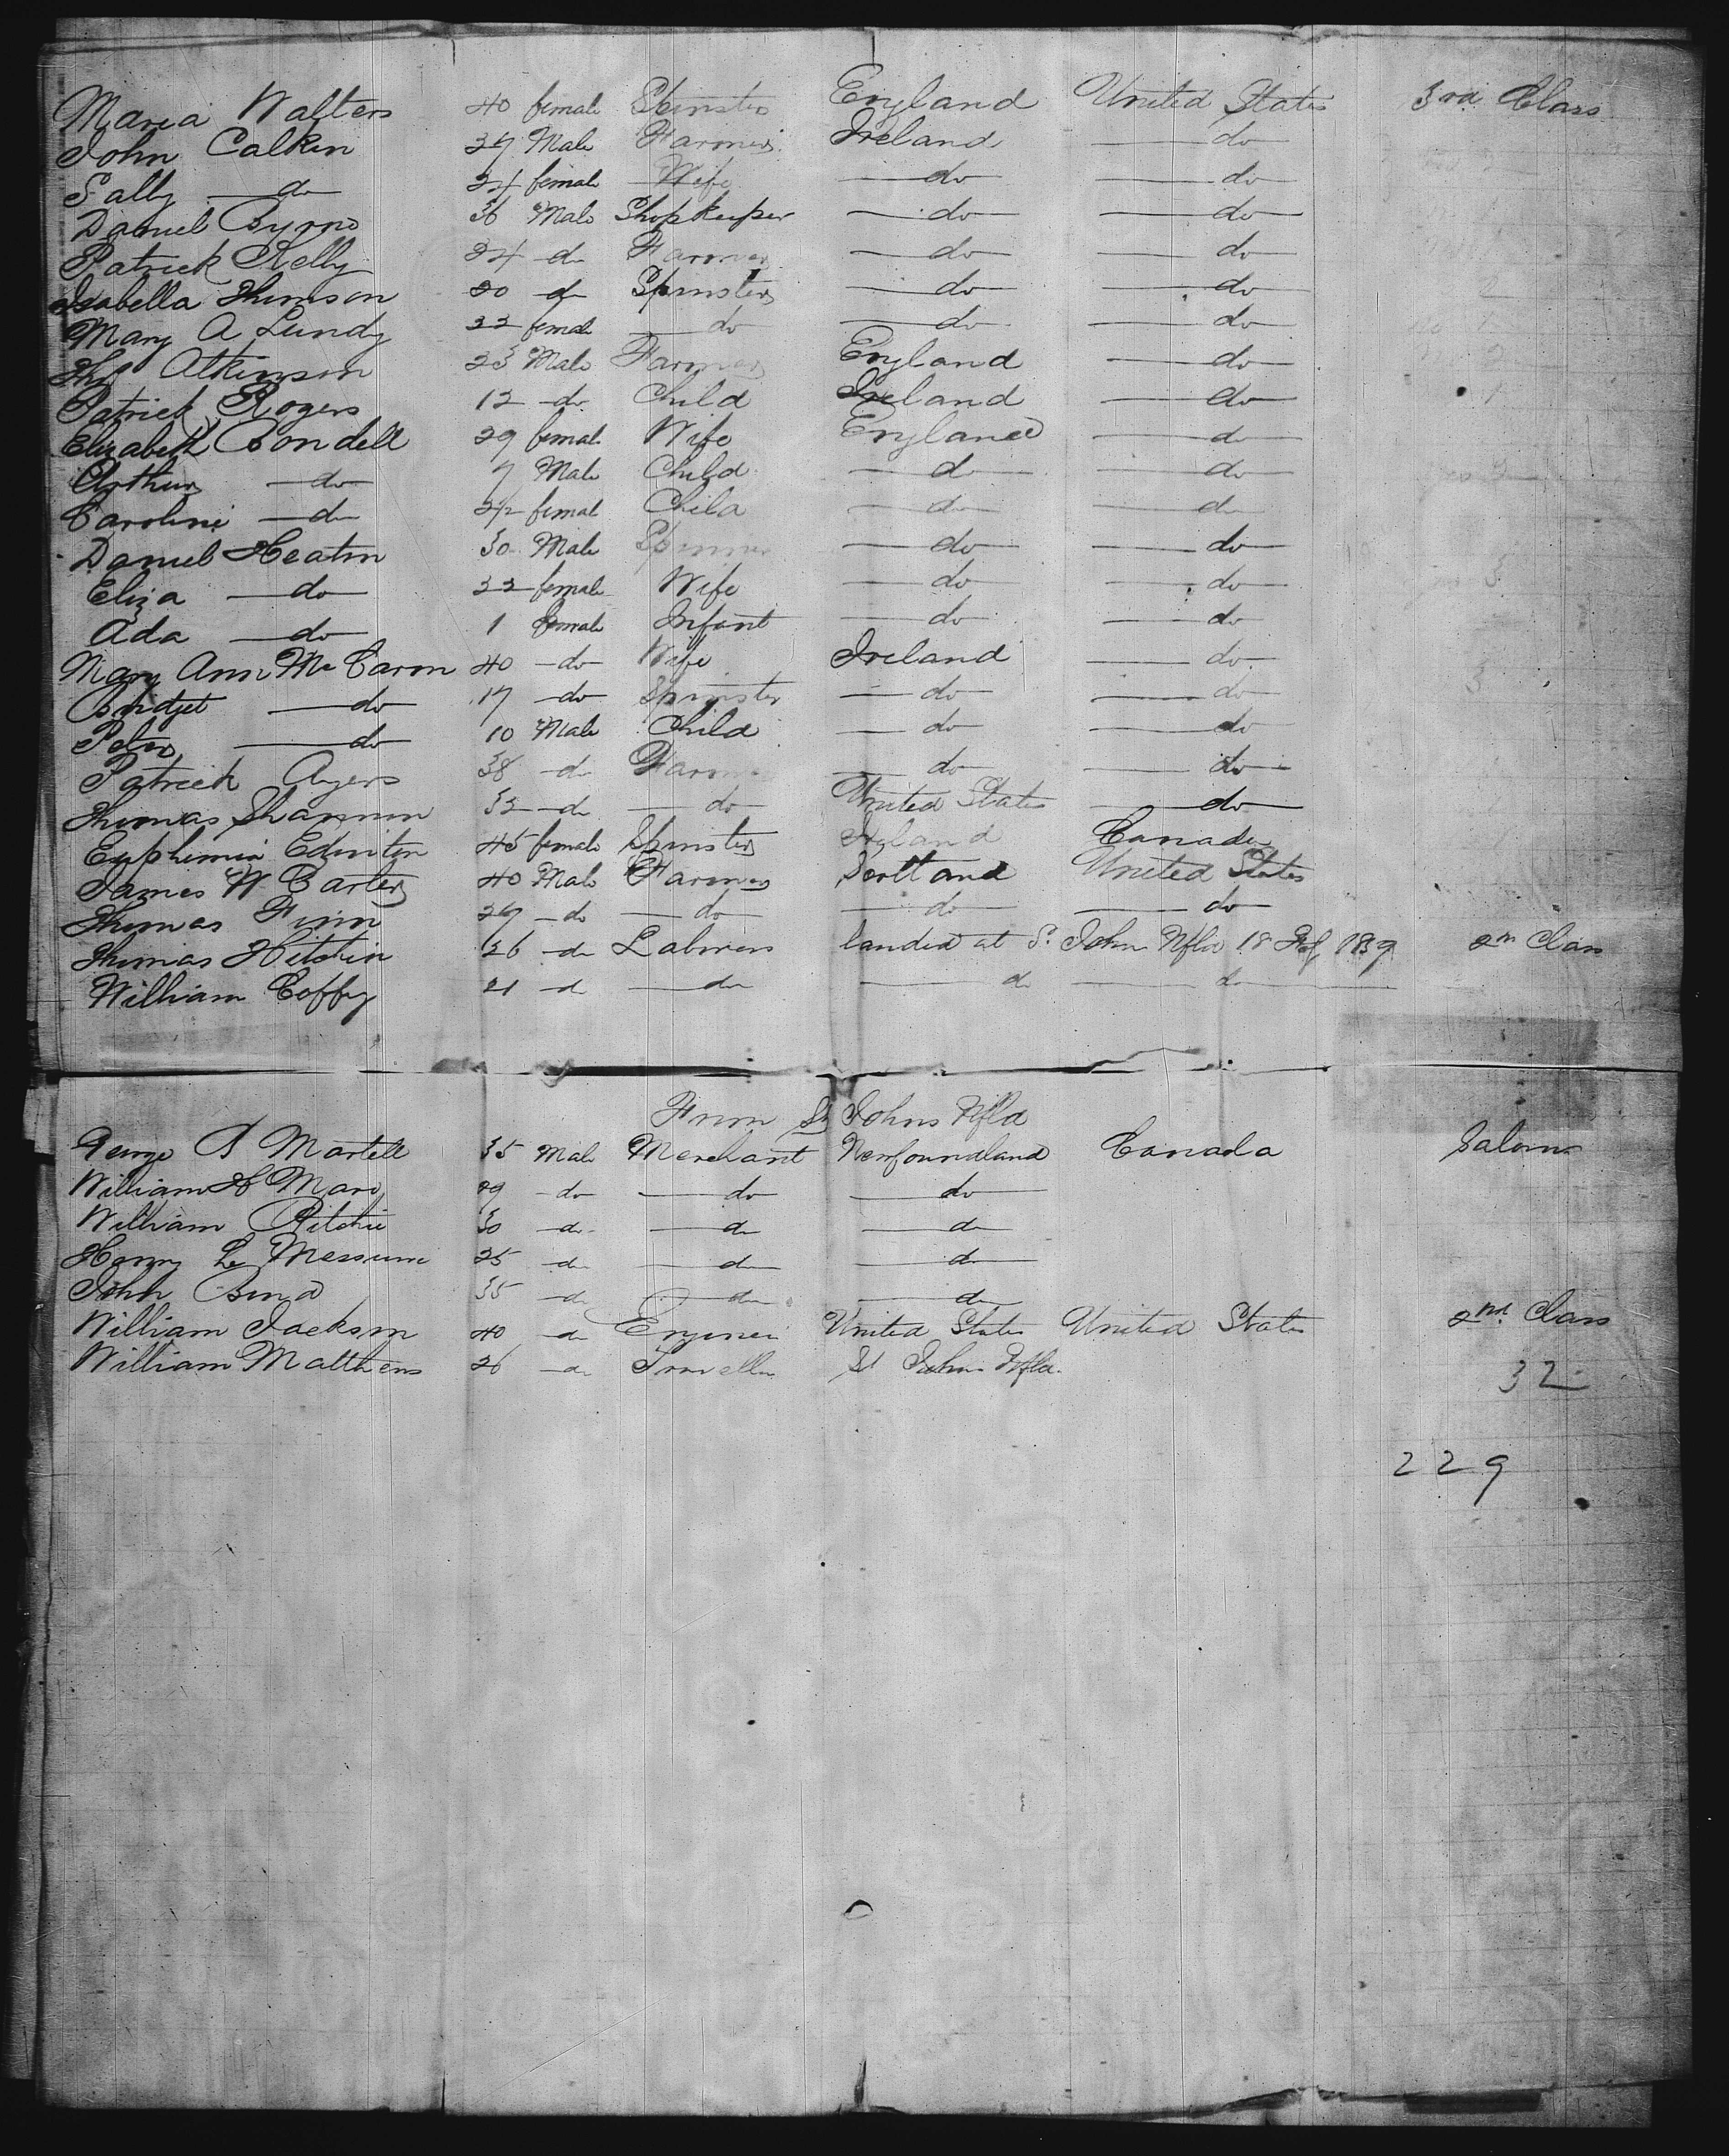 Maria Walters 40 female Spinster England United States 3rd Class
John Calkin 27 Male Farmer Ireland do
Sally do 24 female Wife do do
Daniel Byrne 36 Male Shopkeeper do do
Patrick Kelly 24 do Farmer do do
Isabella Thomson 20 do Spinster do do
Mary A Lundy 22 female do do do
Thos Atkinson 23 Male Farmer England do
Patrick Rogers 12 do Child Ireland do
Elizabeth Bondell 29 female Wife England do
Arthur do 7 Male Child do do
Caroline do female Child do do
Daniel Heaton 30 Male Spinner do do
Eliza do 22 female Wife do do
Ada do 1 female Infant do do
Mary Ann McCaron 40 do Wife Ireland do
Bridget do 17 do Spinster do do
Peter do 10 Male Child do do
Patrick Ayers 38 do Farmer do do
Thomas Shannon 32 do do United States do
Euphemia Edinton 45 female Spinster Canada
James W Carter 40 Male Farmer Scotland United States
Thomas Finn 27 do do do do
Thomas Hitchin 26 do Labourers landed at St John Nfld 18 2n Class
William Coffy 21 do do do do
From St Johns Nfld
George B Martell 35 Male Merchant Newfoundland Canada Saloon
William H Mare 29 do do do
William Ritchie 30 do do do
Harry Le Messurie 25 do do do
John Bond 35 do do do
William Jackson 40 do Engineer United States United States 2nd Class
William Matthews 26 do Traveller St Johns Nfld.
32
229